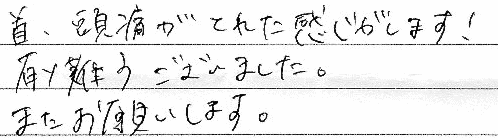 首、頭痛がとれた感じがします!
有り難うございました。
またお願いします。